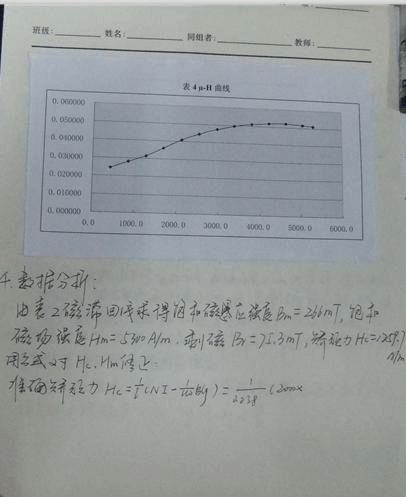 班级: 姓名: 同组者: 教师:
表 4 μ-H 曲线
0.060000
0.050000
0.040000
0.030000
0.020000
0.010000
0.000000
0.0 1000.0 2000.0 3000.0 4000.0 5000.0 6000.0
4. 数据分析:
由表2磁滞回线求得饱和磁感应强度Bm=266mT, 饱和
磁场强度Hm=5300A/m. 剩磁 Br=75.3mT, 矫顽力Hc=1259.7
A/m
用公式对 Hc、Hm修正
准确矫顽力 Hc=